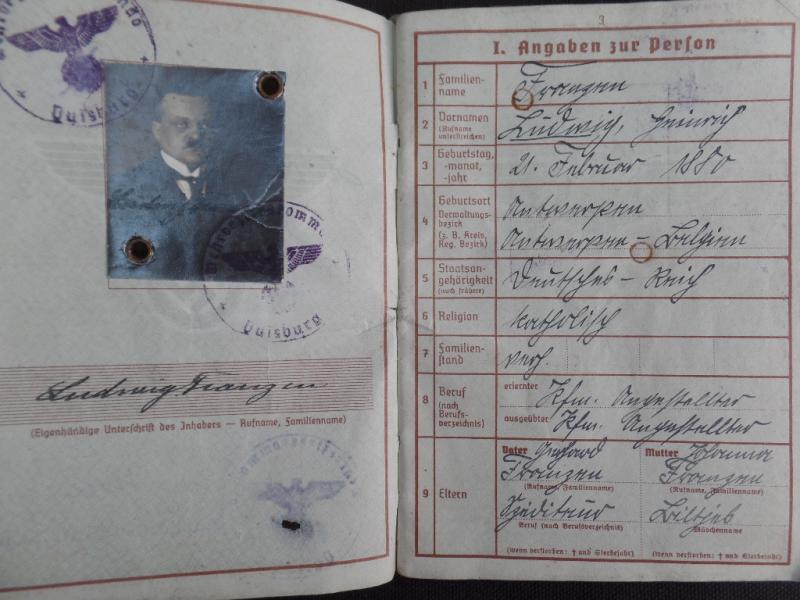 Duisburg
Duisburg
Ludwig Franzen
(Eigenhändige Unterschrift des Inhabers — Rufname, Familienname)
3
I. Angaben zur Person
1 Familien-
name
Franzen
2 Vornamen
(Rufname
unterstreichen)
Ludwig, Heinrich
3 Geburtstag,
-monat,
-jahr
21. Februar 1880
4 Geburtsort
Verwaltungs-
bezirk
(z. B. Kreis,
Reg. Bezirk)
Antwerpen
Antwerpen - Belgien
5 Staatsan-
gehörigkeit
(auch frühere)
Deutsches - Reich
6 Religion
katholisch
7 Familien-
stand
verh.
8 Beruf
(nach
Berufs-
verzeichnis)
erlernter Kfm. Angestellter
ausgeübter Kfm. Angestellter
9 Eltern
Vater Gerhard
Franzen
(Rufname, Familienname)
Spediteur
Beruf (nach Berufsverzeichnis)
(wenn verstorben: † und Sterbejahr)
Mutter Johanna
Franzen
(Rufname, Familienname)
Mädchenname
(wenn verstorben: † und Sterbejahr)